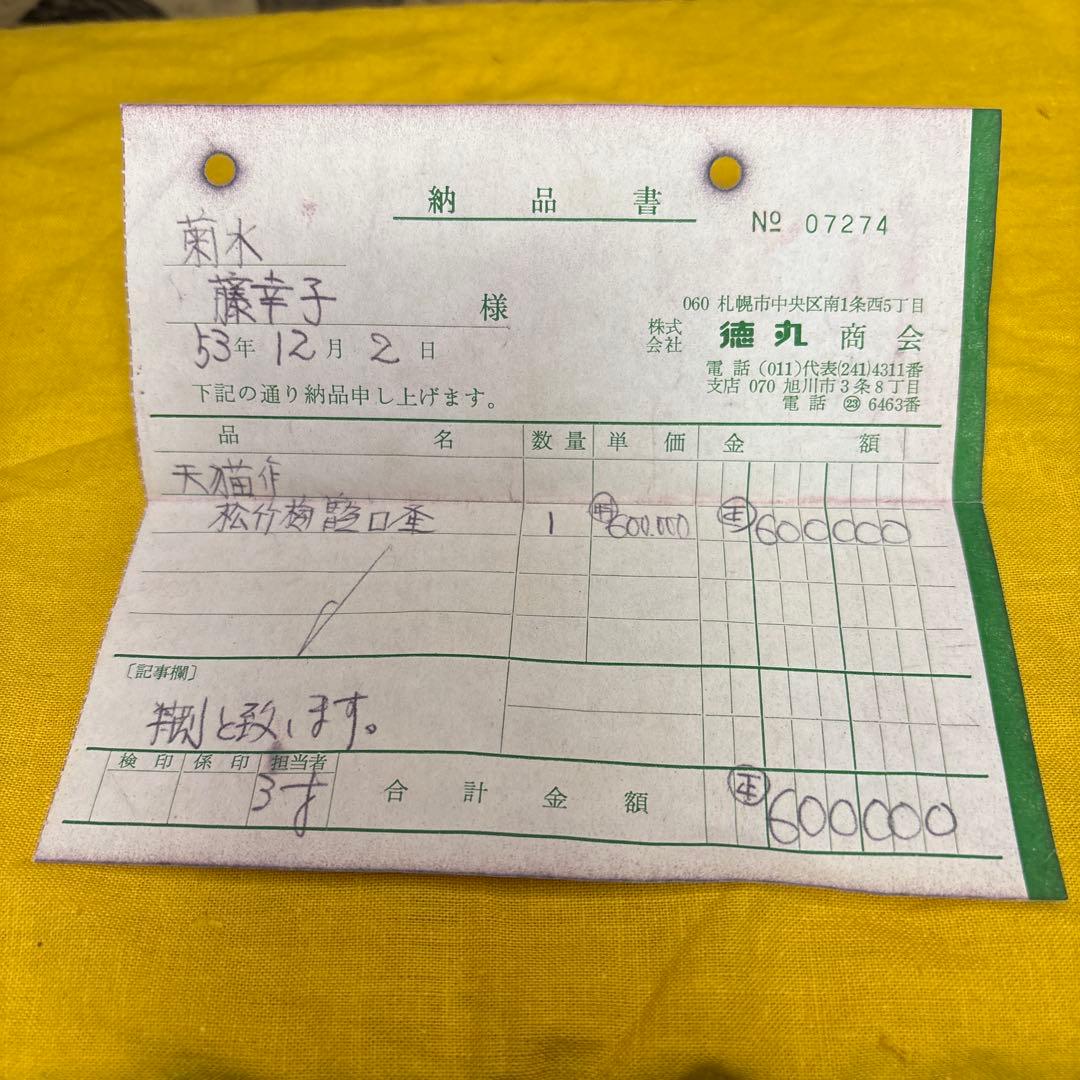 納品書
№ 07274
菊水
藤幸子 様
53年 12月 2日
060 札幌市中央区南1条西5丁目
株式会社 徳丸商会
電話 (011)代表(241)4311番
支店 070 旭川市3条8丁目
電話 ㉓ 6463番
下記の通り納品申し上げます。
品名 数量 単価 金額
天猫作
松竹梅 口 1 600.000 600000
〔記事欄〕
と致します。
検印 係印 担当者
合計金額 600000